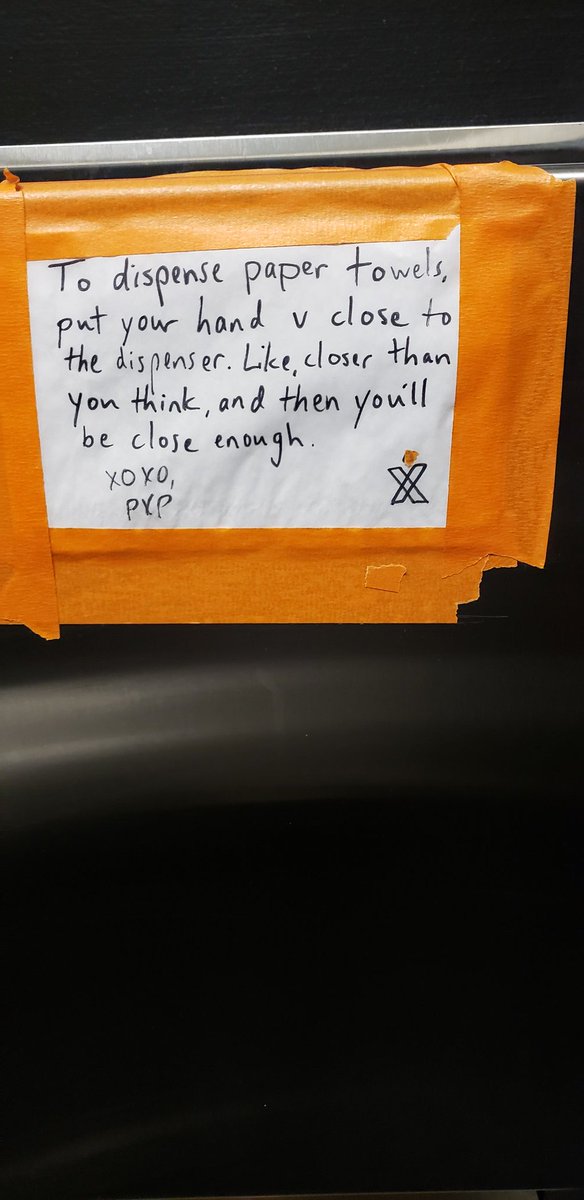 To dispense paper towels,
put your hand v close to
the dispenser. Like, closer than
you think, and then you'll
be close enough.
XOXO,
PXP
X